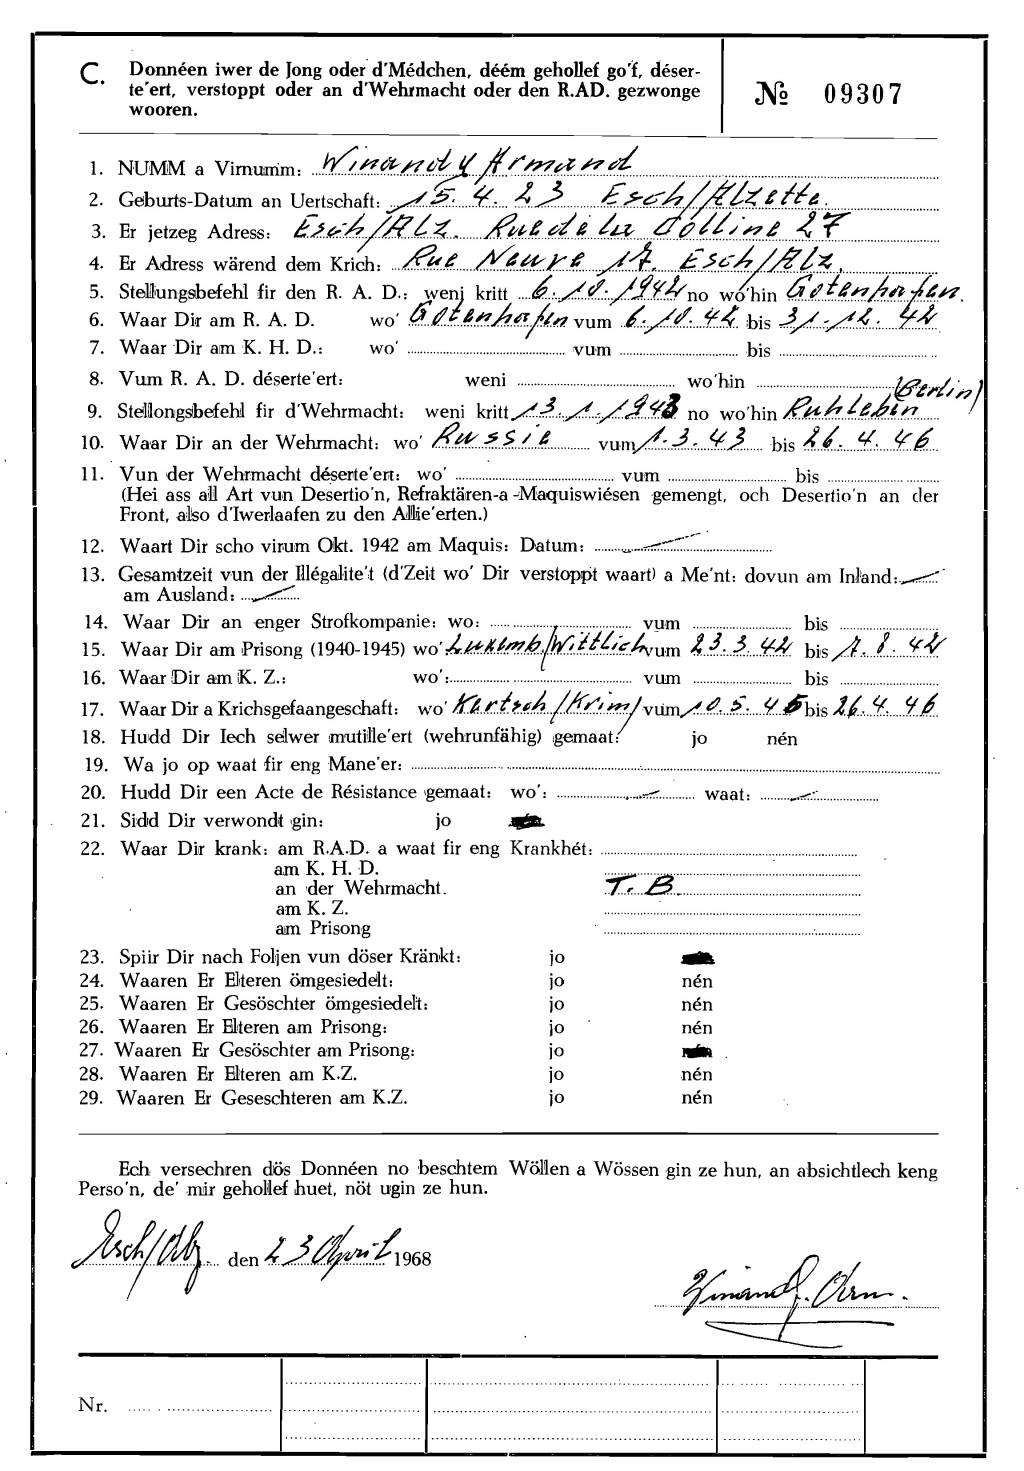 C. Donnéen iwer de Jong oder d'Médchen, déém gehollef go'f, déser-
te'ert, verstoppt oder an d'Wehrmacht oder den R.AD. gezwonge
wooren.
№ 09307
1. NUMM a Virnumm: Winandy Armand
2. Geburts-Datum an Uertschaft: 15.4.23 Esch/Alzette.
3. Er jetzeg Adress: Esch/Alz. Rue de la Colline 27
4. Er Adress wärend dem Krich: Rue Neuve 17. Esch/Alz.
5. Stellungsbefehl fir den R. A. D.: weni kritt 6.10.1942 no wo'hin Gotenhafen.
6. Waar Dir am R. A. D. wo' Gotenhafen vum 6.10.42 bis 31.12.42
7. Waar Dir am K. H. D.: wo' vum bis
8. Vum R. A. D. déserte'ert: weni wo'hin
(Berlin)
9. Stellongsbefehl fir d'Wehrmacht: weni kritt 13.1.1943 no wo'hin Ruhleben
10. Waar Dir an der Wehrmacht: wo' Russie vum 1.3.43 bis 26.4.46
11. Vun der Wehrmacht déserte'ert: wo' vum bis
(Hei ass all Art vun Desertio'n, Refraktären-a-Maquiswiésen gemengt, och Desertio'n an der
Front, also d'Iwerlaafen zu den Allie'erten.)
12. Waart Dir scho virum Okt. 1942 am Maquis: Datum:
13. Gesamtzeit vun der Illégalite't (d'Zeit wo' Dir verstoppt waart) a Me'nt: dovun am Inland:
am Ausland:
14. Waar Dir an enger Strofkompanie: wo: vum bis
15. Waar Dir am Prisong (1940-1945) wo' Luxemb./Wittlich vum 23.3.42 bis 7.8.42
16. Waar Dir am K. Z.: wo': vum bis
17. Waar Dir a Krichsgefaangeschaft: wo' Kertsch/Krim/ vum 10.5.45 bis 26.4.46
18. Hudd Dir Iech selwer mutille'ert (wehrunfähig) gemaat: jo nén
19. Wa jo op waat fir eng Mane'er:
20. Hudd Dir een Acte de Résistance gemaat: wo': waat:
21. Sidd Dir verwondt gin: jo
22. Waar Dir krank: am R.A.D. a waat fir eng Krankhét:
am K. H. D.
an der Wehrmacht. T.B.
am K. Z.
am Prisong
23. Spiir Dir nach Foljen vun döser Kränkt: jo
24. Waaren Er Elteren ömgesiedelt: jo nén
25. Waaren Er Gesöschter ömgesiedelt: jo nén
26. Waaren Er Elteren am Prisong: jo nén
27. Waaren Er Gesöschter am Prisong: jo
28. Waaren Er Elteren am K.Z. jo nén
29. Waaren Er Geseschteren am K.Z. jo nén
Ech versechren dös Donnéen no beschtem Wöllen a Wössen gin ze hun, an absichtlech keng
Perso'n, de' mir gehollef huet, nöt ugin ze hun.
Esch/Alz. den 23 April 1968
Winandy. Arm.
Nr.